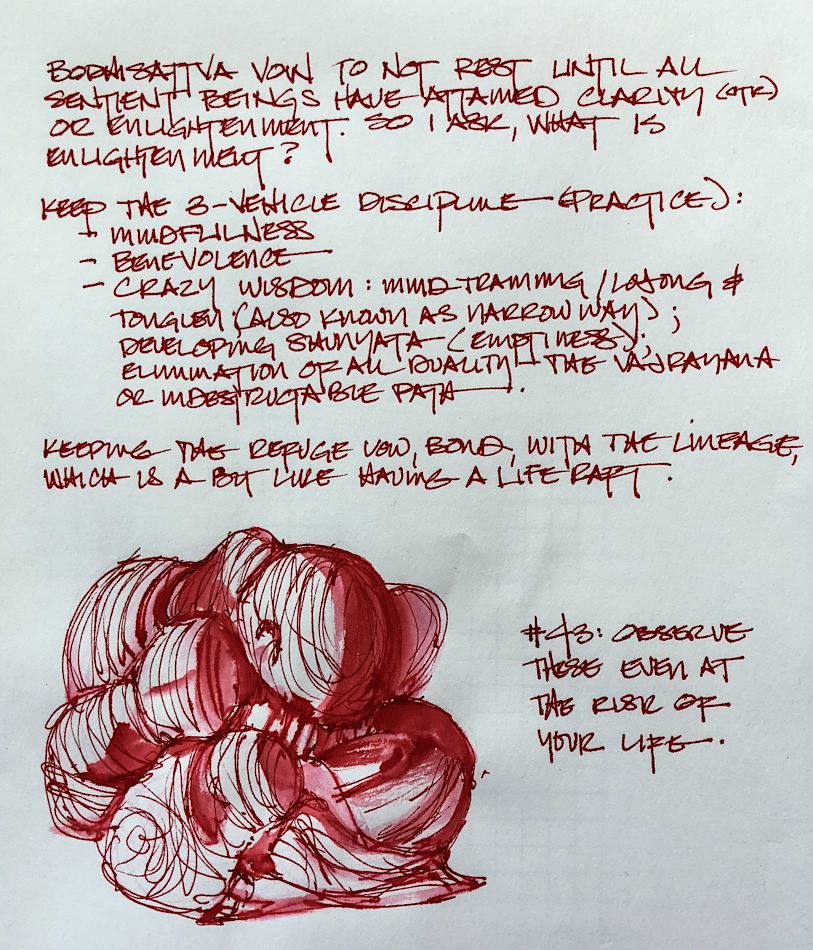 BODHISATTVA VOW TO NOT REST UNTIL ALL
SENTIENT BEINGS HAVE ATTAINED CLARITY (OTK)
OR ENLIGHTENMENT. SO I ASK, WHAT IS
ENLIGHTENMENT?
KEEP THE 3-VEHICLE DISCIPLINE (PRACTICE):
- MINDFULNESS
- BENEVOLENCE
- CRAZY WISDOM: MIND TRAINING / LOJONG &
TONGLEN (ALSO KNOWN AS NARROW WAY);
DEVELOPING SHUNYATA (EMPTINESS);
ELIMINATION OF ALL DUALITY - THE VAJRAYANA
OR INDESTRUCTABLE PATH.
KEEPING THE REFUGE VOW, BOND, WITH THE LINEAGE,
WHICH IS A BIT LIKE HAVING A LIFE RAFT.
#43: OBSERVE
THESE EVEN AT
THE RISK OF
YOUR LIFE.